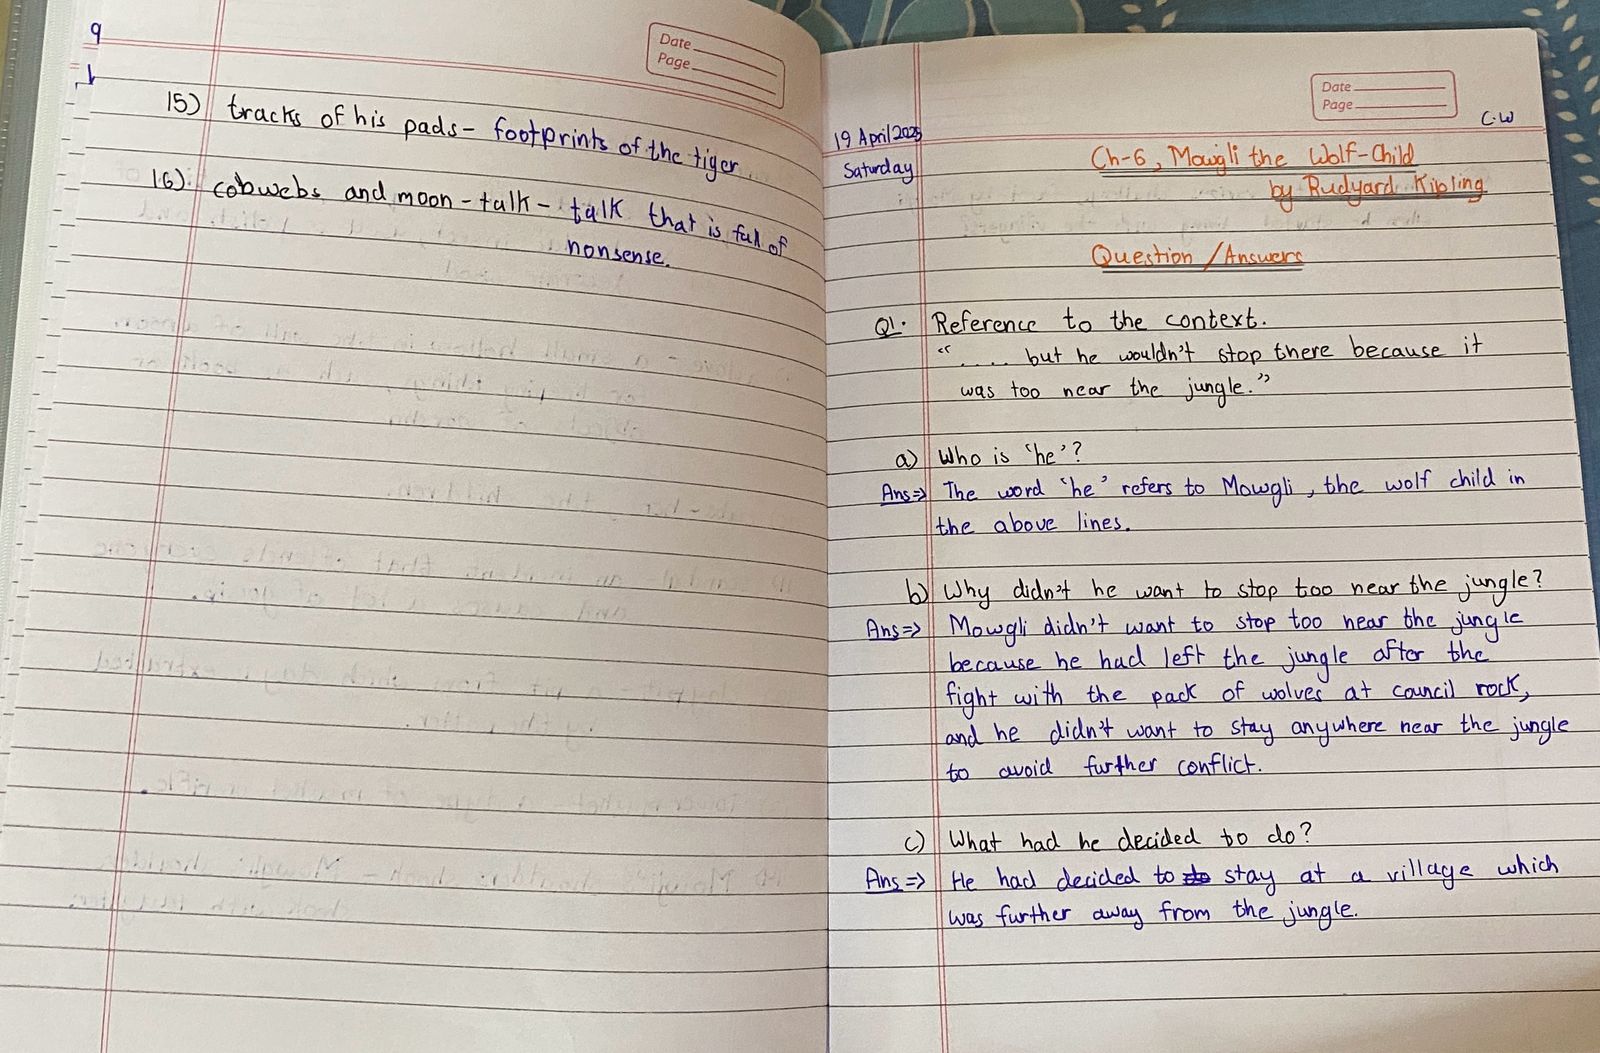 9
Date
Page
15) tracks of his pads - footprints of the tiger
16) cobwebs and moon-talk - talk that is full of
nonsense.
Date
Page
C.W
19 April 2025
Saturday
Ch-6, Mowgli the Wolf-Child
by Rudyard Kipling
Question /Answers
Q1. Reference to the context.
“ .... but he wouldn't stop there because it
was too near the jungle.”
a) Who is ‘he’?
Ans⇒ The word ‘he’ refers to Mowgli, the wolf child in
the above lines.
b) Why didn't he want to stop too near the jungle?
Ans⇒ Mowgli didn't want to stop too near the jungle
because he had left the jungle after the
fight with the pack of wolves at council rock,
and he didn't want to stay anywhere near the jungle
to avoid further conflict.
c) What had he decided to do?
Ans⇒ He had decided to stay at a village which
was further away from the jungle.